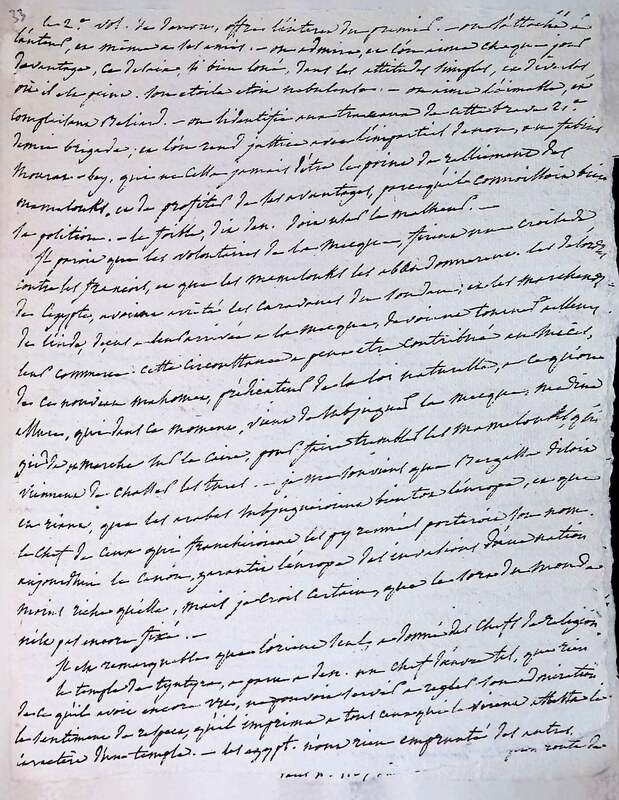 33
le 2e. vol. de denon, offre l'interet du premier. — on s'attache à
l'auteur, et même a ses amis. — on admire, et l'on aime chaque jour
davantage, ce desaix, si bien loué, dans les attitudes simples, et diverses
où il le peint. son etoile etoit nebuleuse. — on aime l'aimable, et
complaisant Beliard. — on s'identifie aux travaux de cette brave 21e.
demie brigade; et l'on rend justice avec l'impartial denon, au fabius
Mourat-bey, qui ne cessa jamais d'être le point de ralliement des
mamelouks, et de profiter de ses avantages, parcequ'il connoissoit bien
sa position. — le foible, dit den. doit user le malheur. —
Il paroit que les volontaires de la Mecque, firent une croisade
contre les francois, et que les mamelouks les abandonnerent. les desordres
de l'egypte, avoient arrêté les caravanes du soudan; et les marchands
de l'inde, deçus a leur arrivée a la mecque, devoient tourner ailleurs
leur commerce. cette circonstance a peut etre contribué au succès,
de ce nouveau mahomet, prédicateur de la loi naturelle, a ce qu'on
assure, qui dans ce moment, vient de subjuguer la mecque, medine
qui de marche sur le Caire, pour faire trembler les Mamelouks qui
viennent de chasser les turcs. — je me souviens que Bergasse disoit
en riant, que les arabes subjugueroient bientôt l'europe, et que
le chef de ceux qui franchiroient les pyrennées porteroit son nom.
aujourdhui le canon, garantit l'europe des invasions d'une nation
moins riche qu'elle, mais je crois certain, que le sort du monde
n'est pas encore fixé. —
Il est remarquable que l'orient seul, a donné des chefs de religion.
le temple de tyntyra, a paru a den. un chef d'œuvre tel, que rien
de ce qu'il avoit encore vu, ne pouvoit servir a regler son admiration
le sentiment de respect, qu'il imprima a tous ceux qui le virent attesta le
caractère d'un temple. — les egypt. n'ont rien emprunté des autres,